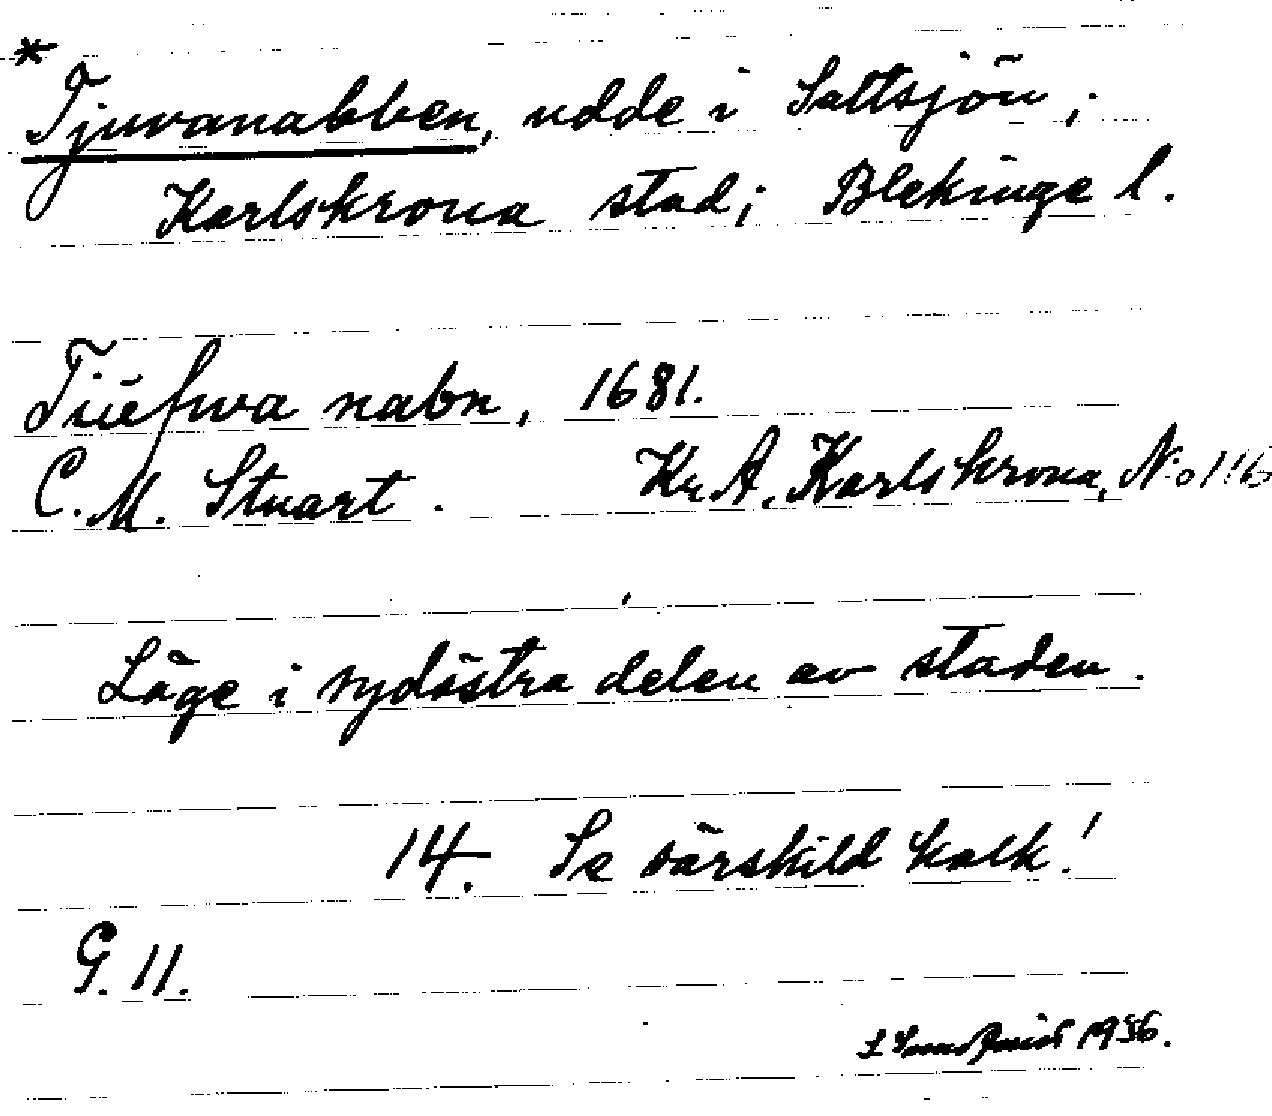 *
Tjuvanabben, udde i Saltsjön;
Karlskrona stad; Blekinge l.
Tiüfwa nabn, 1681.
C. M. Stuart. Kr. A. Karlskrona, No 116
Läge i sydöstra delen av staden.
14. Se särskild kalk!
G. 11.
1936.